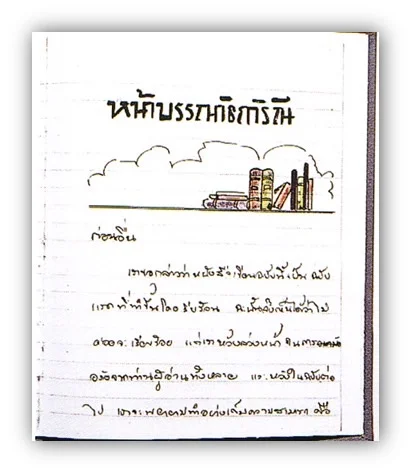 หน้าบรรณาธิการิณี
ก่อนอื่น
เราขอกล่าวว่าหนังสือเขียนฉบับนี้เป็น ฉบับ
แรก ที่ทำขึ้นโดย รีบร้อน จะเห็นได้ว่าไม่
ค่อยจะ เรียบร้อย แต่เราหวังล่วงหน้า
อภัยจากท่านผู้อ่านทั้งหลาย และ หวังในฉบับต่อ
ไป เราจะพยายามทำอย่างเต็มความสามารถ